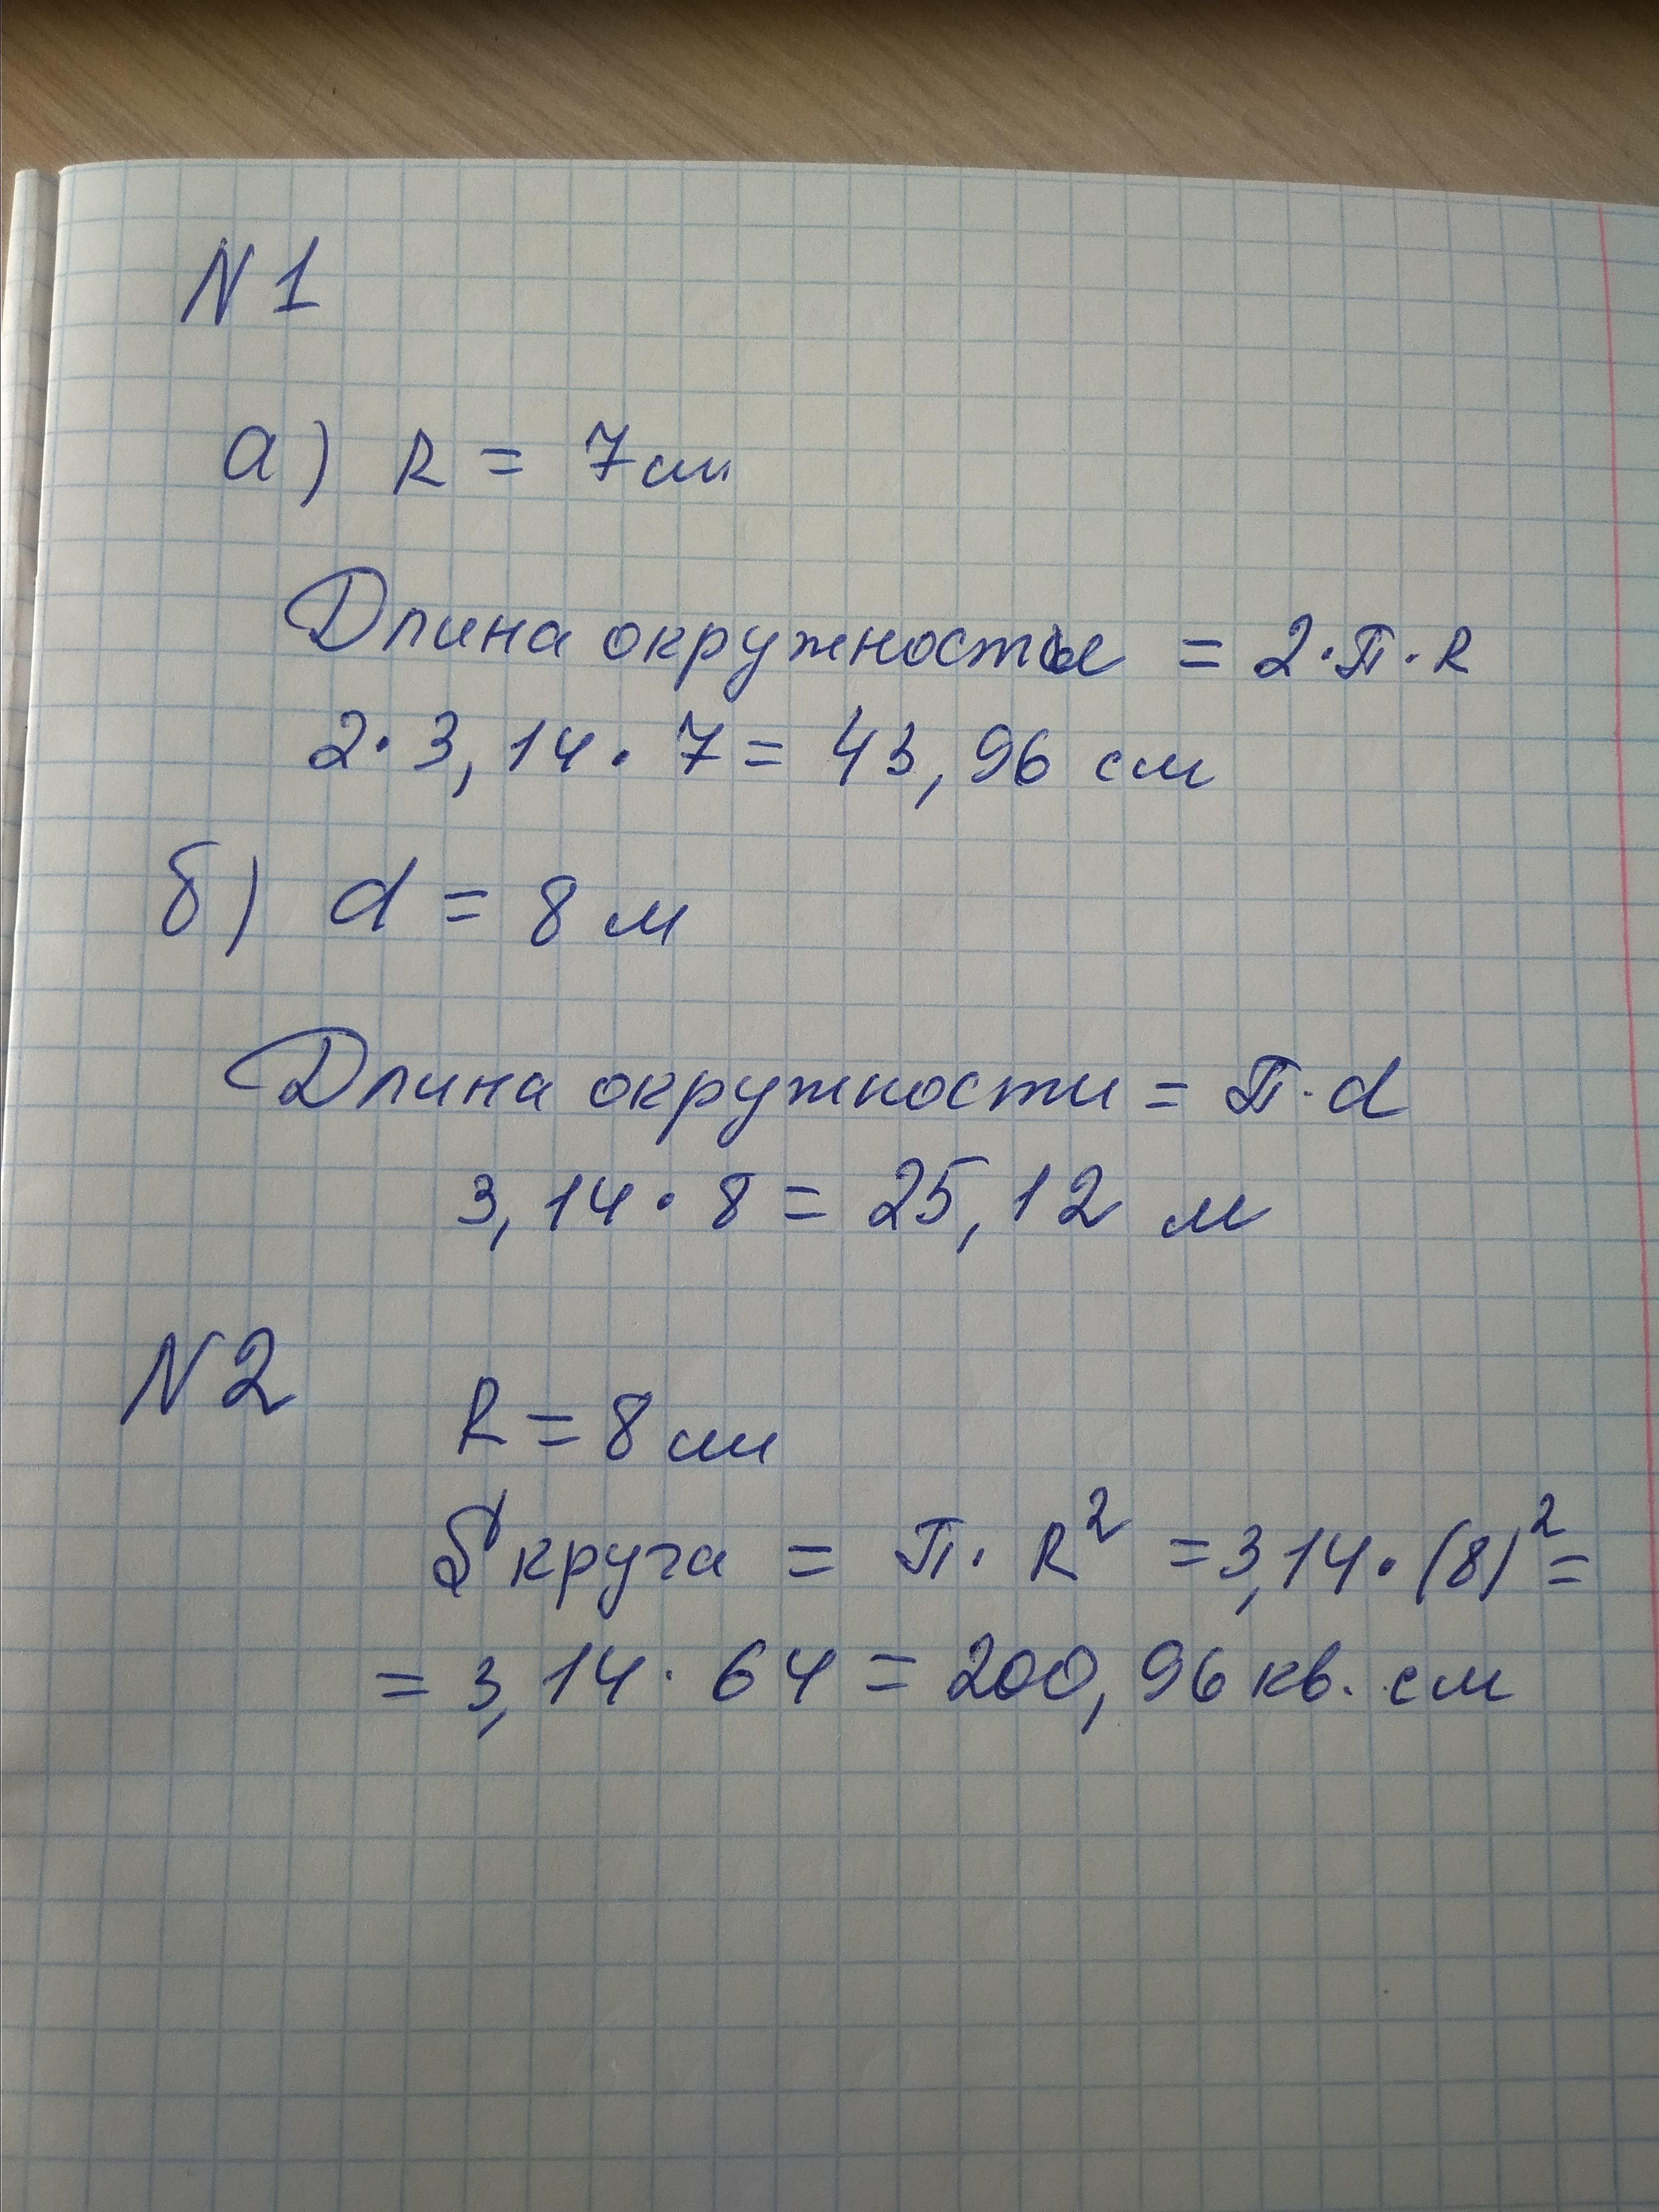 N 1
а) R = 7 см
Длина окружносты = 2·π·R
2·3,14·7 = 43,96 см
б) d = 8 м
Длина окружности = π·d
3,14·8 = 25,12 м
N 2
R = 8 см
S круга = π·R² = 3,14·(8)² =
= 3,14·64 = 200,96 кв. см